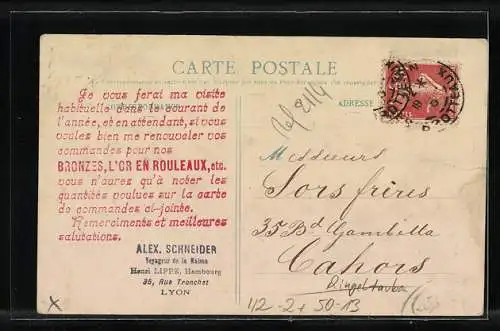 CARTE POSTALE
ADRESSE
Je vous ferai ma visite
habituelle dans le courant de
l'année, et en attendant, si vous
voulez bien me renouveler vos
commandes pour nos
BRONZES, L'OR EN ROULEAUX, etc.
vous n'aurez qu'à noter les
quantités voulues sur la carte
de commandes ci-jointe.
Remerciments et meilleures
salutations.
ALEX. SCHNEIDER
Voyageur de la Maison
Henri LIPPE, Hambourg
35, Rue Tronchet
LYON
Messieurs
Sors frères
35 Bd Gambetta
Cahors
42-2+50-13